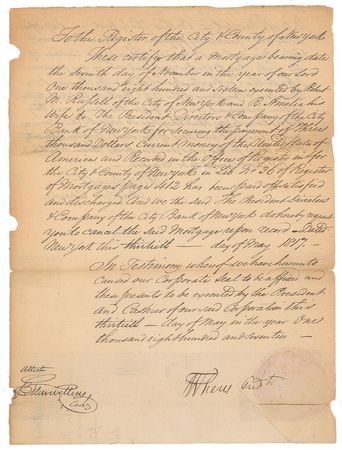 To the Register of the City & County of New York
These certify that a Mortgage bearing date
the seventh day of November in the year of our Lord
One thousand eight hundred and Sixteen executed by Robt
M. Russell of the City of New York and R. Amelia his
Wife to The President Directors & Company of the City
Bank of New York for securing the payment of Three
thousand Dollars Current money of the United States of
America and Recorded in the Office of Register in for
the City & County of New York in Lib No 36 of Register
of Mortgages page 412 has been paid off satisfied
and discharged And we the said The President Directors
& Company of the City Bank of New York do hereby request
you to cancel the said Mortgage upon record – Dated
New York this thirtieth — day of May 1817 –
In Testimony whereof we have hereunto
caused our Corporate Seal to be affixed and
these presents to be executed by the President
and Cashier of our said Corporation this
thirtieth — day of May in the year One
thousand eight hundred and seventeen –
Attest
Cash
Prest